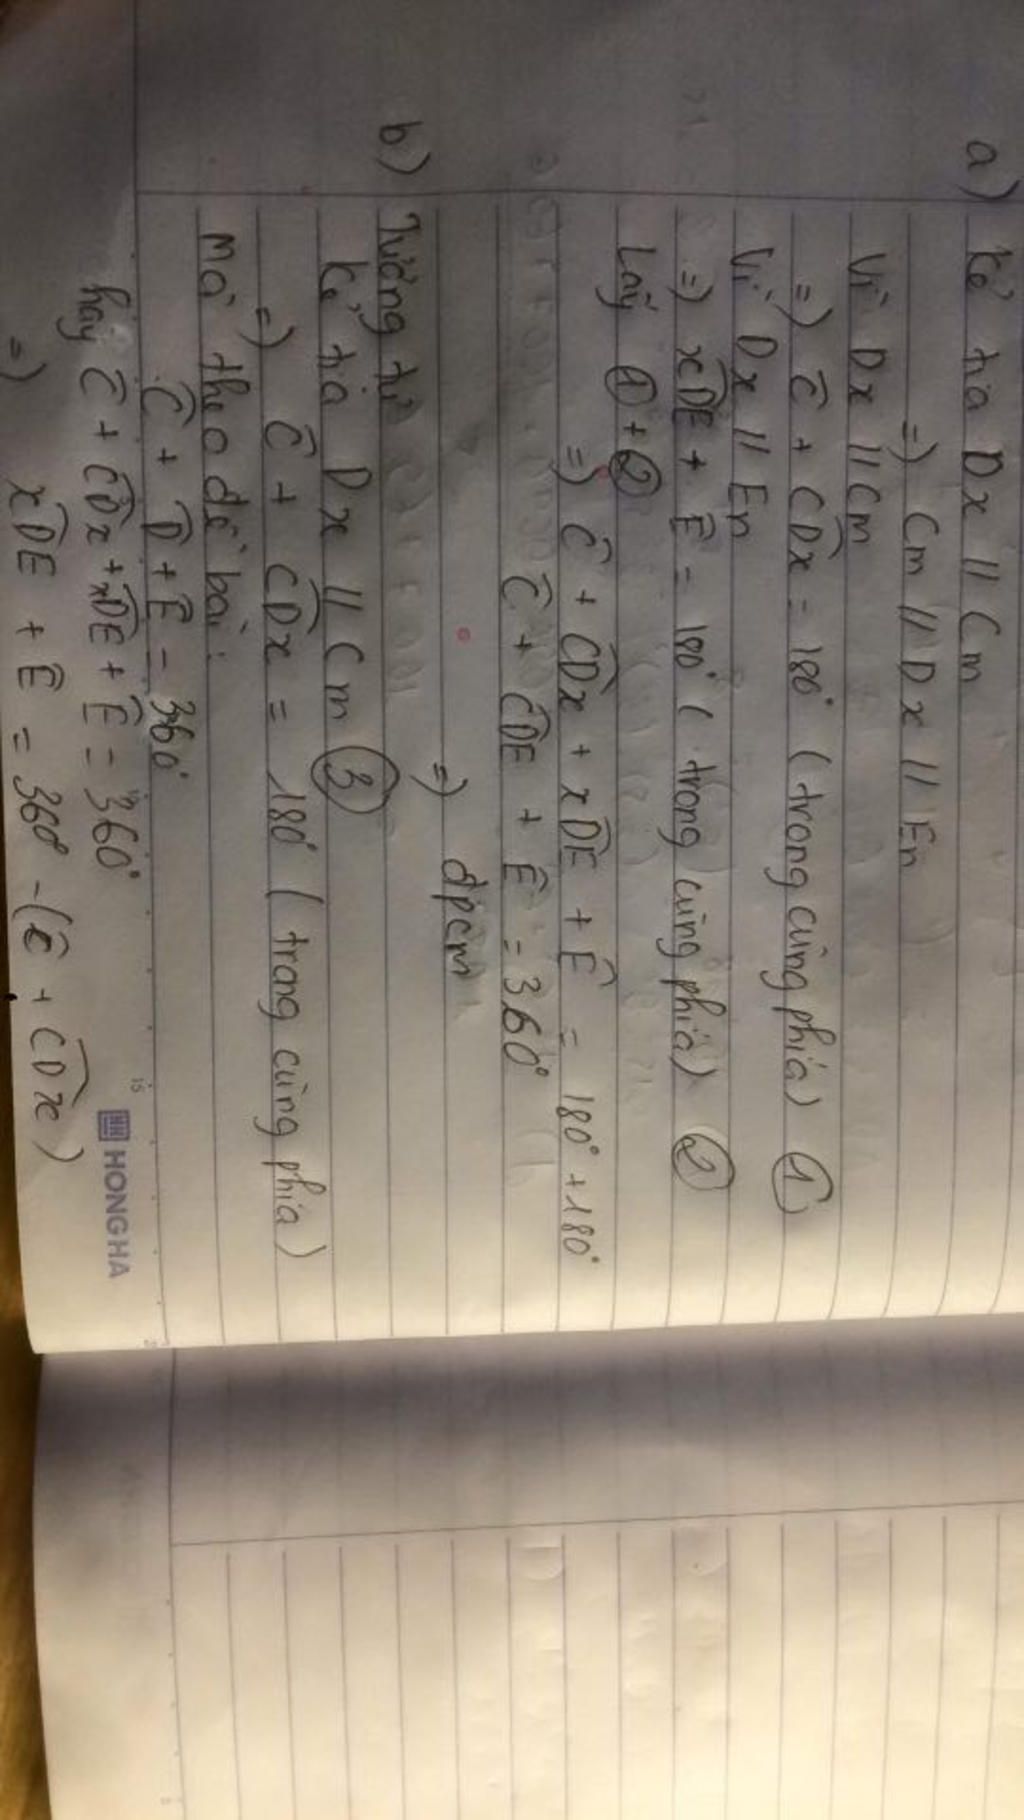 a) Kẻ tia Dx // Cm
=) Cm // Dx // En
Vì Dx // Cm
=) Ĉ + CD̂x = 180° (trong cùng phía) ①
Vì Dx // En
=) xD̂E + Ê = 180° (trong cùng phía) ②
Lấy ① + ②
=) Ĉ + CD̂x + xD̂E + Ê = 180° + 180°
Ĉ + CD̂E + Ê = 360°
=) đpcm
b) Tương tự
Kẻ tia Dx // Cm ③
=) Ĉ + CD̂x = 180° (trong cùng phía)
Mà theo đề bài:
Ĉ + D̂ + Ê = 360°
hay Ĉ + CD̂x + xD̂E + Ê = 360°
=) xD̂E + Ê = 360° - (Ĉ + CD̂x)
15
HONG HA